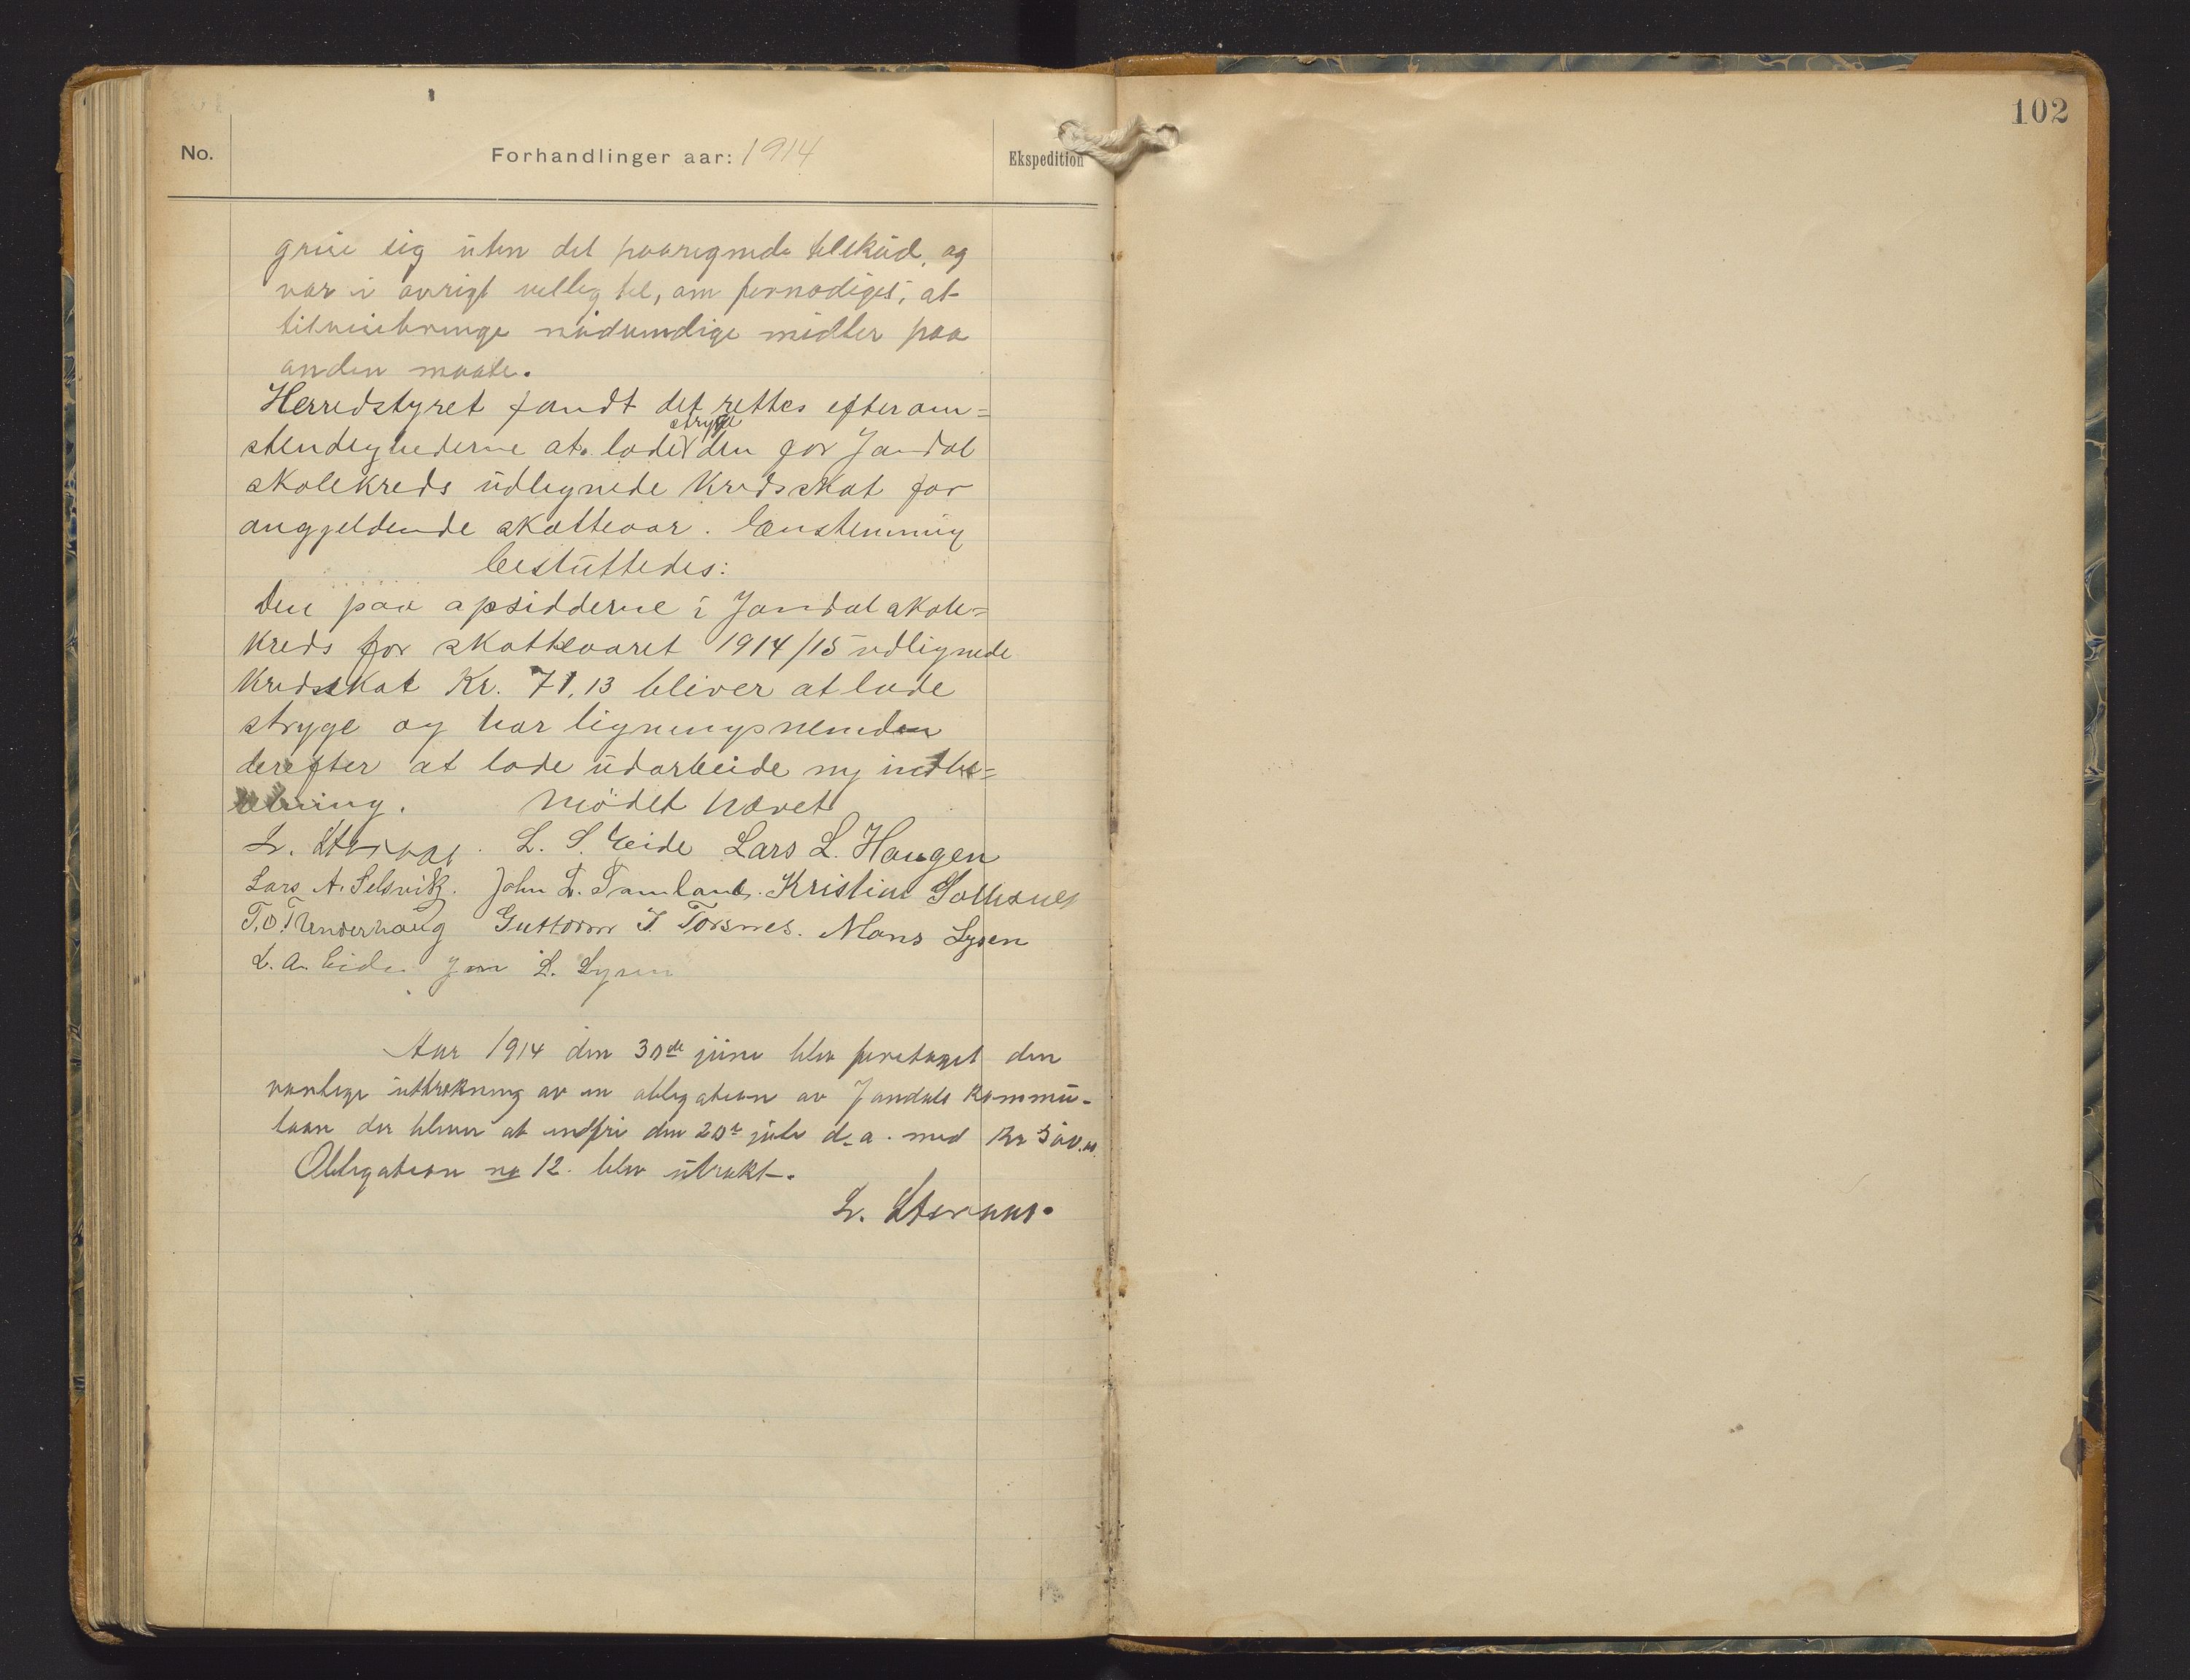 102
No.
Forhandlinger aar: 1914
Ekspedition
greie sig uten det paaregnede tilskud, og
var i øvrigt villig til, om fornødiges, at
tilveiebringe nødvendige midler paa
anden maate.
Herredstyret fandt det rettes efter om=
stendighederne at lade stryge den for Jondal
skolekreds üdlignede Kredsskat for
angjeldende skatteaar. Eenstemmig
besluttedes:
Den paa opsidderne i Jondal skole=
kreds for skatteaaret 1914/15 udlignede
Kredsskat Kr. 71,13 bliver at lade
stryge og har ligningsnemden
derefter at lade üdarbeide ny indbe=
talning. Mödet hævet
L. S. Eide Lars L. Haugen
Lars A. Selsvik. John L. Samland. Kristian Solhus
T. O. Underhaug Guttorm J. Torsnes. Mons Lysen
L. A. Eide Jon L. Lysen
Aar 1914 den 30de juni blev foretaget den
vanlige uttrekning av en obligation av Jondals Kommu-
laan der bliver at indfri den 20de juli d.a. med Kr 500.00
Obligation no 12 blev utrukt.